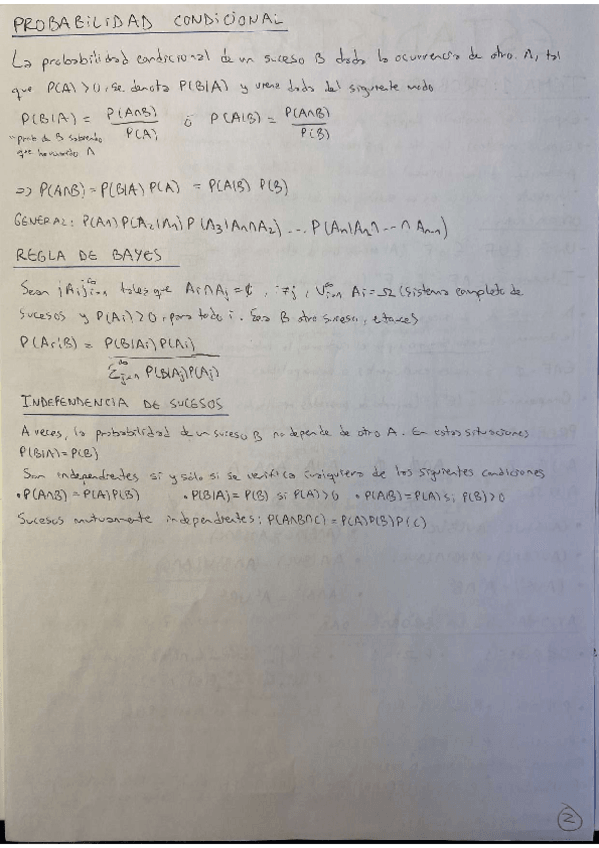 PROBABILIDAD CONDICIONAL
La probabilidad condicional de un suceso B dada la ocurrencia de otro A, tal
que P(A) > 0, se denota P(B|A) y viene dada del siguiente modo
P(B|A) = P(A∩B) / P(A) ó P(A|B) = P(A∩B) / P(B)
"prob de B sabiendo
que ha ocurrido A
=> P(A∩B) = P(B|A) P(A) = P(A|B) P(B)
GENERAL: P(A1) P(A2|A1) P(A3|A1∩A2) ... P(An|A1∩---∩An-1)
REGLA DE BAYES
Sean {Ai}∞i=1 tales que Ai∩Aj = ∅, i≠j, ∪∞i=1 Ai = Ω (sistema completo de
sucesos y P(Ai) > 0, para todo i. Sea B otro suceso, entonces
P(Ai|B) = P(B|Ai) P(Ai) / Σ∞j=1 P(B|Aj)P(Aj)
INDEPENDENCIA DE SUCESOS
A veces, la probabilidad de un suceso B no depende de otro A. En estas situaciones
P(B|A) = P(B)
Son independientes si y sólo si se verifica cualquiera de las siguientes condiciones
• P(A∩B) = P(A)P(B) • P(B|A) = P(B) si P(A) > 0 • P(A|B) = P(A) si P(B) > 0
Sucesos mutuamente independientes: P(A∩B∩C) = P(A)P(B)P(C)
2